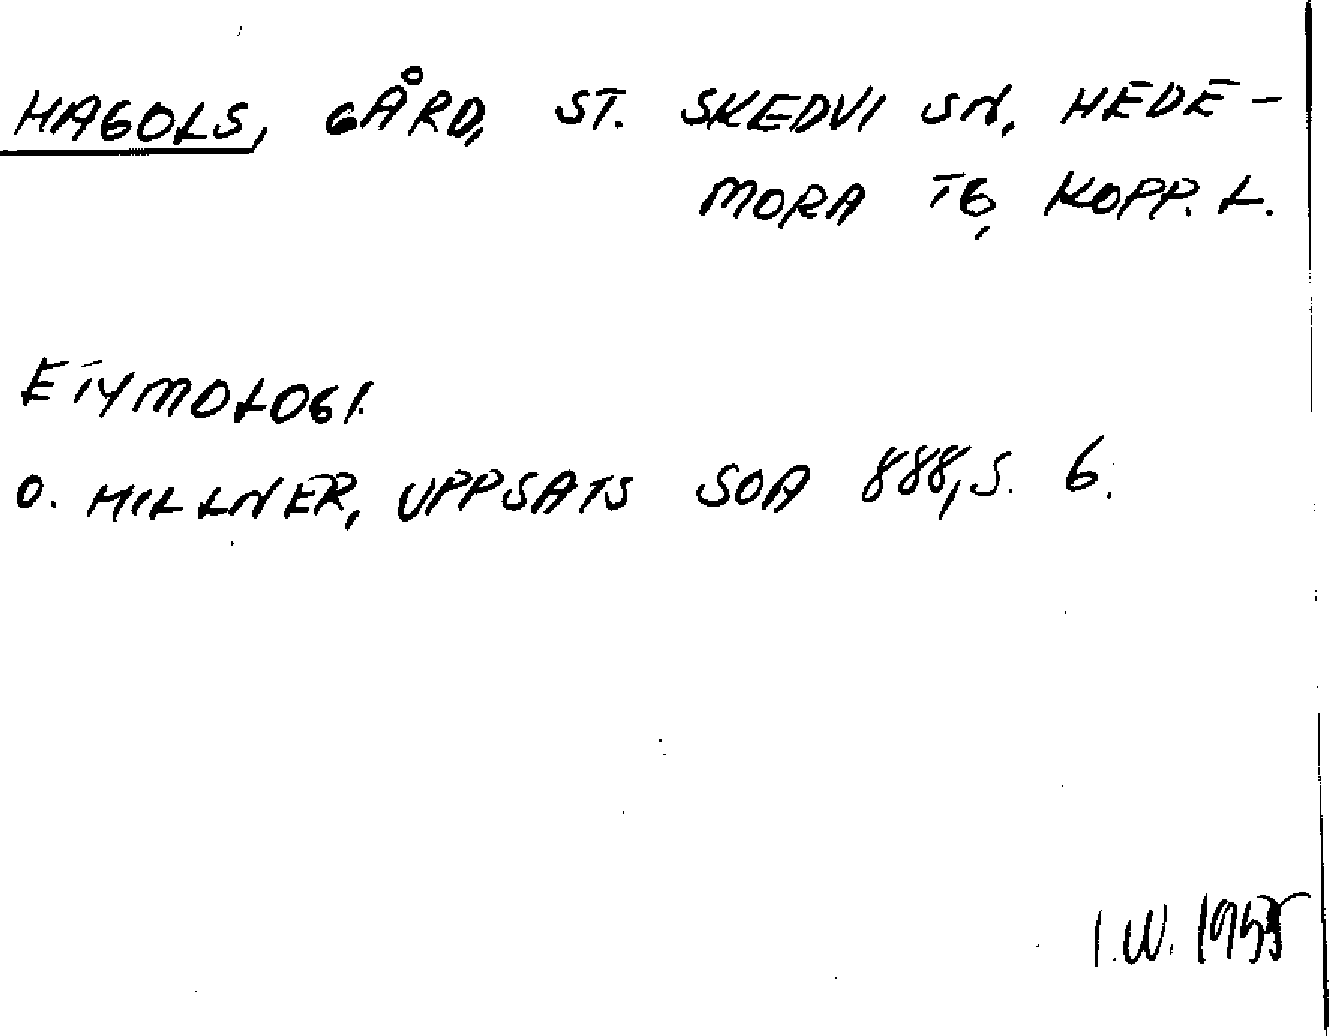 HAGOLS, GÅRD, ST. SKEDVI SN, HEDE-
MORA TG, KOPP. L.
ETYMOLOGI.
O. MILLNER, UPPSATS SOA 888, S. 6.
I.W. 1955